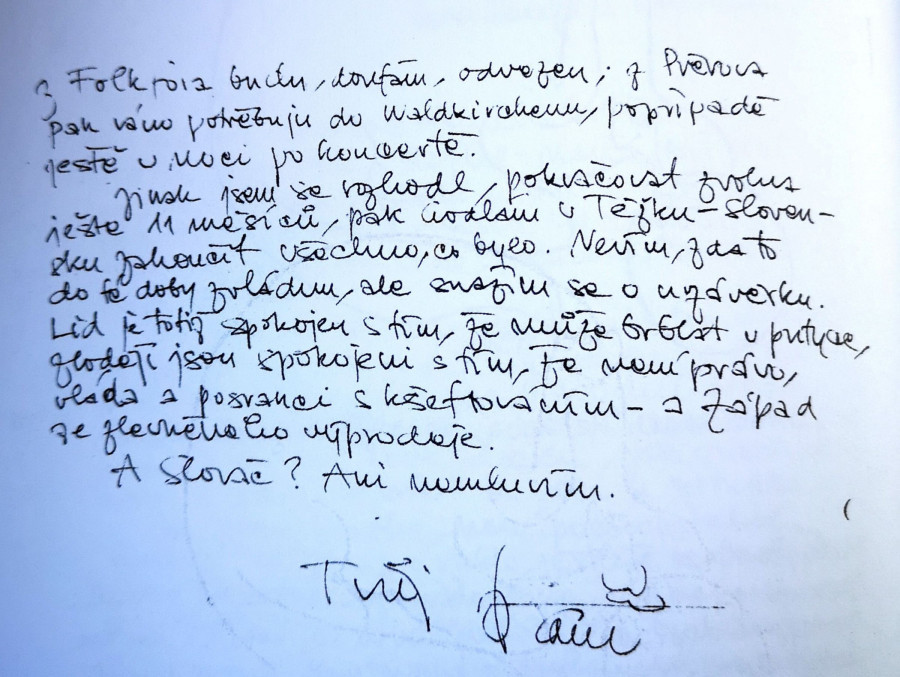 z Folkfóra budu, doufám, odvezen; z Přerova
pak ráno potřebuju do Waldkirchenu, popřípadě
ještě v noci po koncertě.
Jinak jsem se rozhodl, pokračovat zvolna
ještě 11 měsíců, pak hodlám v Těžku-Sloven-
sku zakončit všechno, co bylo. Nevím, zda to
do té doby zvládnu, ale snažím se o uzávěrku.
Lid je totiž spokojen s tím, že může brblat v putyce,
zloději jsou spokojeni s tím, že není právo,
vláda a poslanci s kšeftováním – a Západ
ze zlevněného výprodeje.
A Slováč? Ani nemluvím.
Tvůj